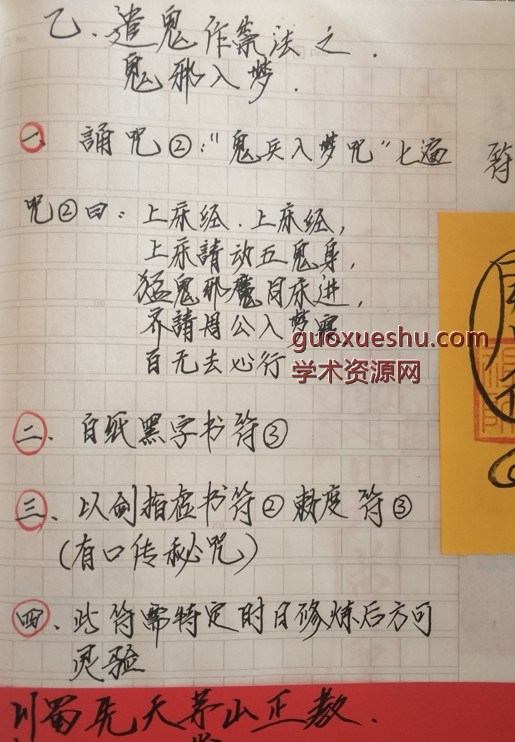 乙、造鬼作禁法之.
鬼邪入梦.
一、誦咒②:"鬼兵入梦咒"七遍
符
咒②曰:上床经.上床经,
上床請动五鬼身,
猛鬼邪魔自床进,
不請周公入梦
百无去必行
guoxueshu.com
学术资源网
二、白纸黑字书符③
三、以剑指虚书符②敕度符③
(有口传秘咒)
四、此符需特定时日修炼后方可
灵验
川蜀先天茅山正教.